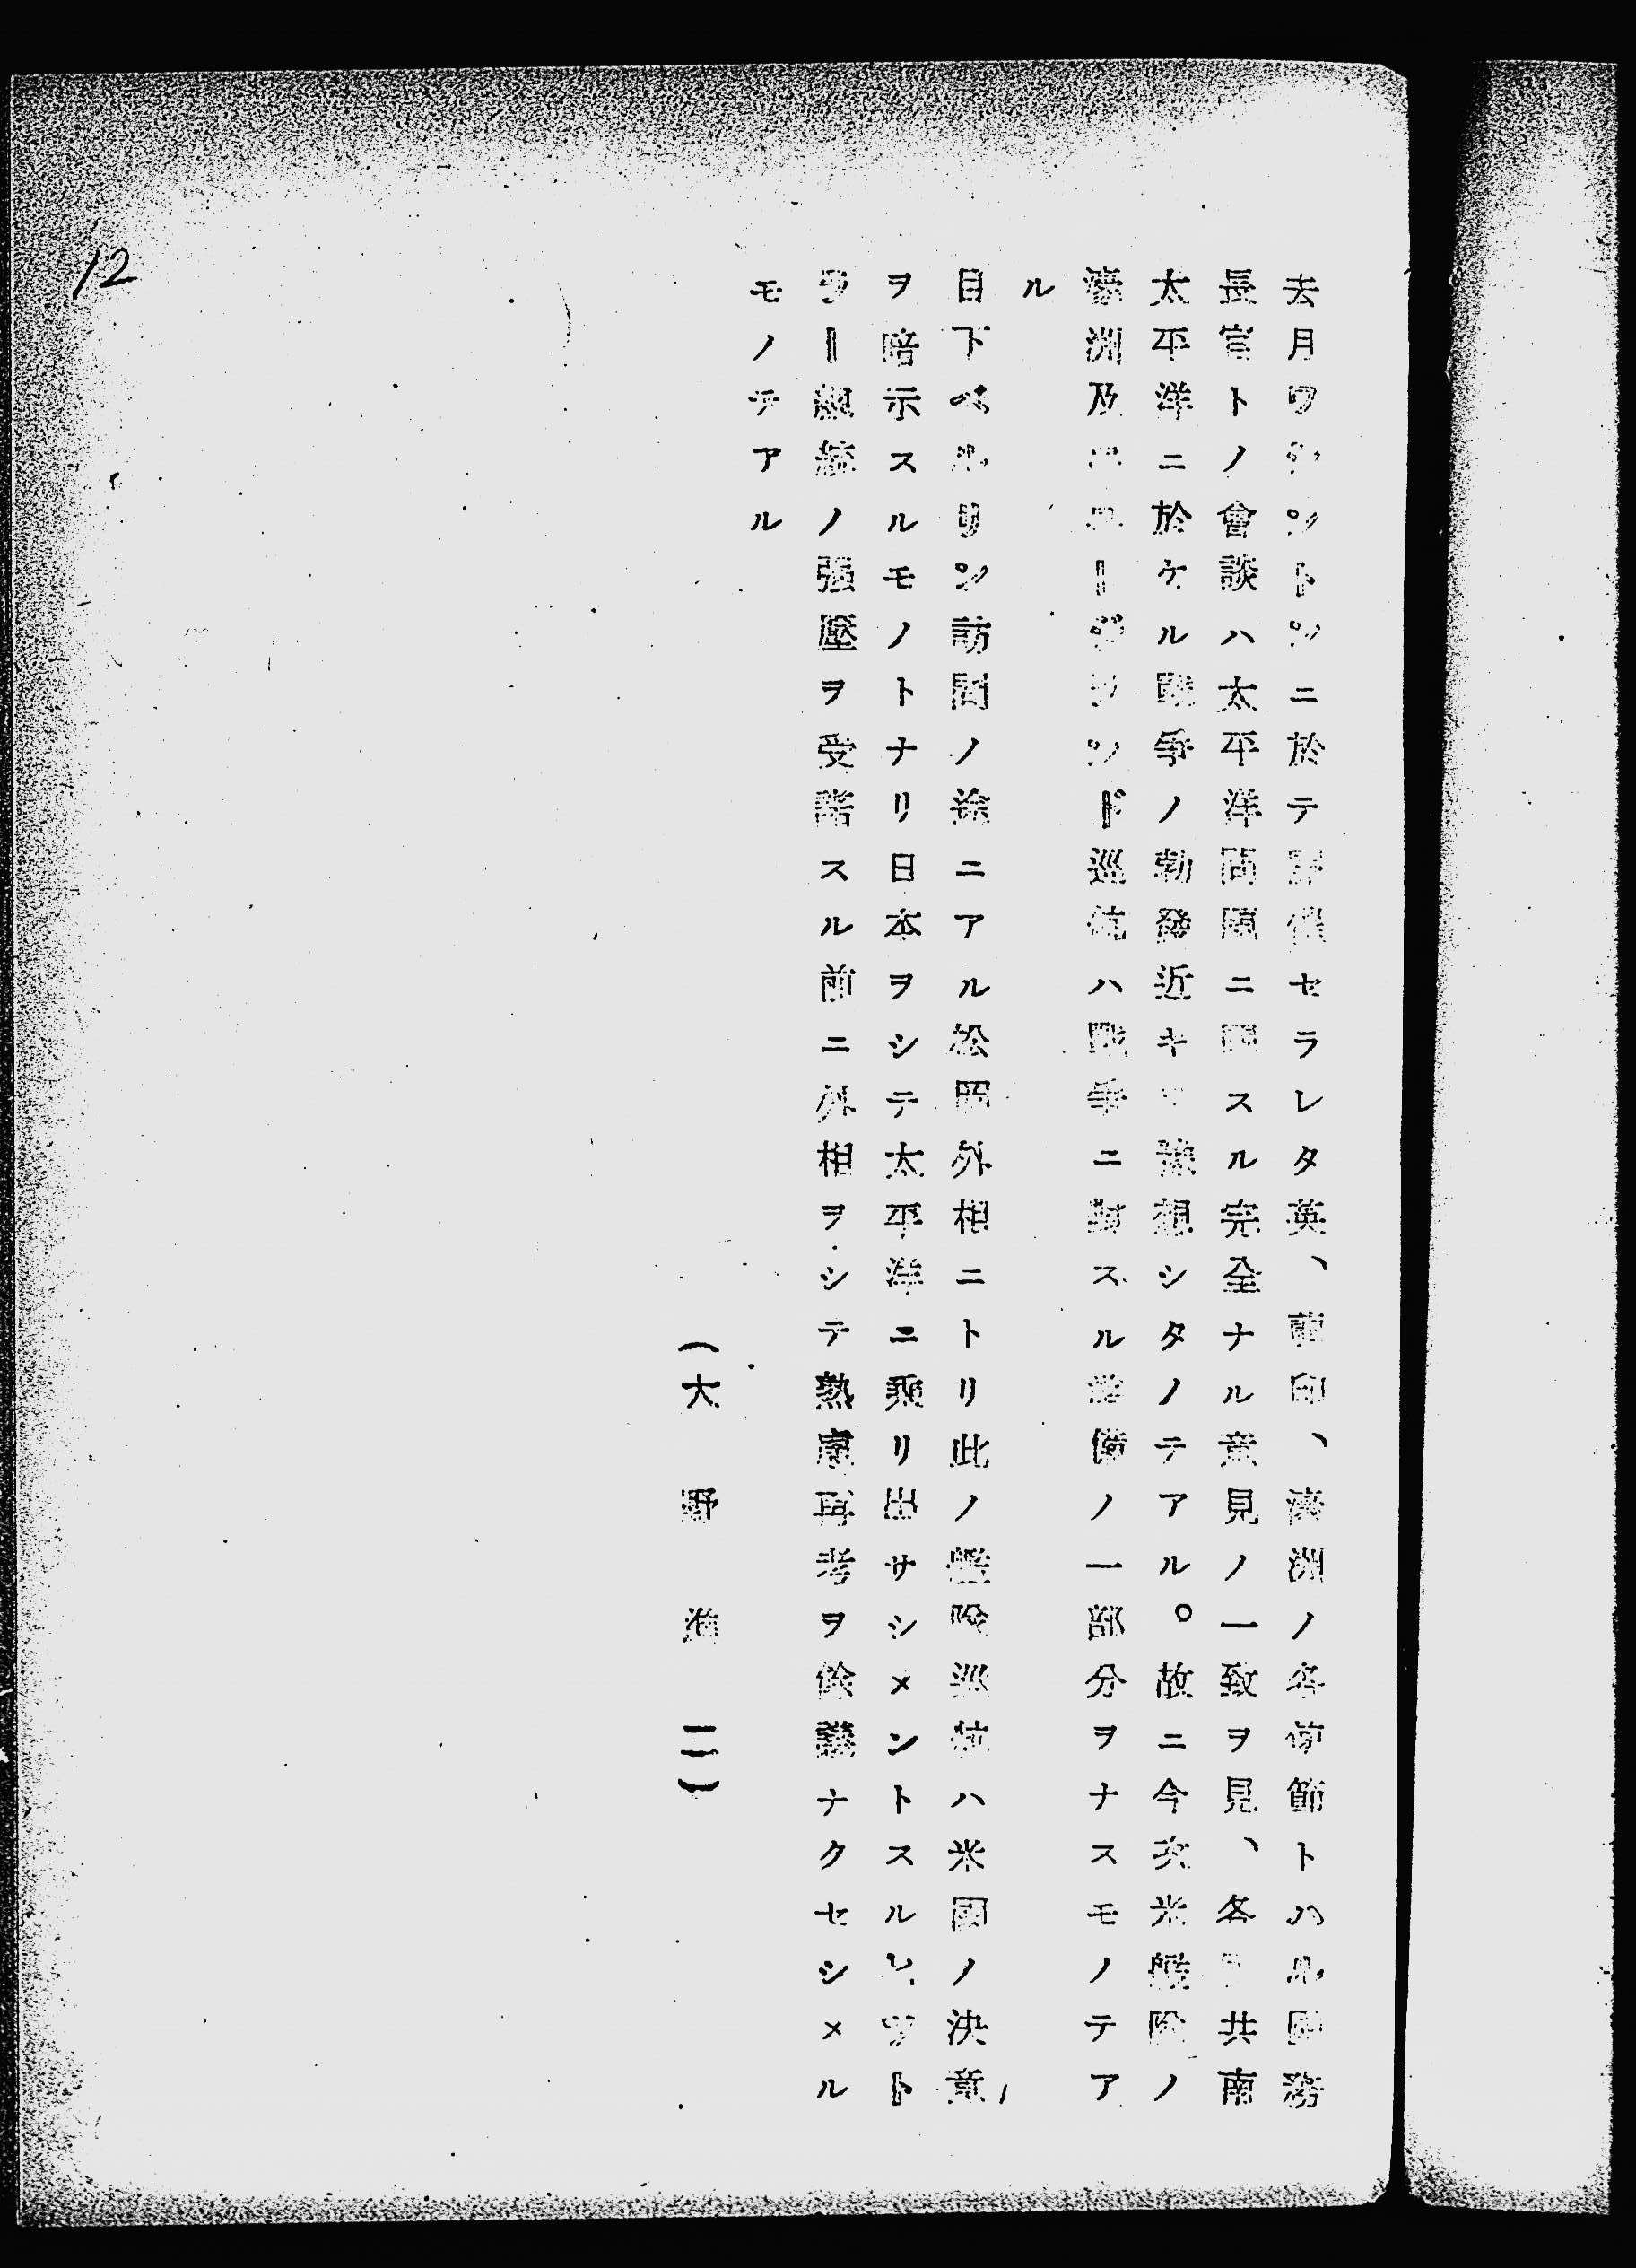 去月ワシントンニ於テ開催セラレタ英、蘭印、濠洲ノ各使節トハル國務
長官トノ會談ハ太平洋問題ニ關スル完全ナル意見ノ一致ヲ見、各國共南
太平洋ニ於ケル戰爭ノ勃發近キヲ豫想シタノテアル。故ニ今次米艦隊ノ
濠洲及ニユージランド巡航ハ戰爭ニ對スル準備ノ一部分ヲナスモノテア
ル
目下ベルリン訪問ノ途ニアル松岡外相ニトリ此ノ艦隊巡航ハ米國ノ決意
ヲ暗示スルモノトナリ日本ヲシテ太平洋ニ乘リ出サシメントスルヒツト
ラー總統ノ强壓ヲ受諾スル前ニ外相ヲシテ熟慮再考ヲ餘議ナクセシメル
モノテアル
(大野 二)
12